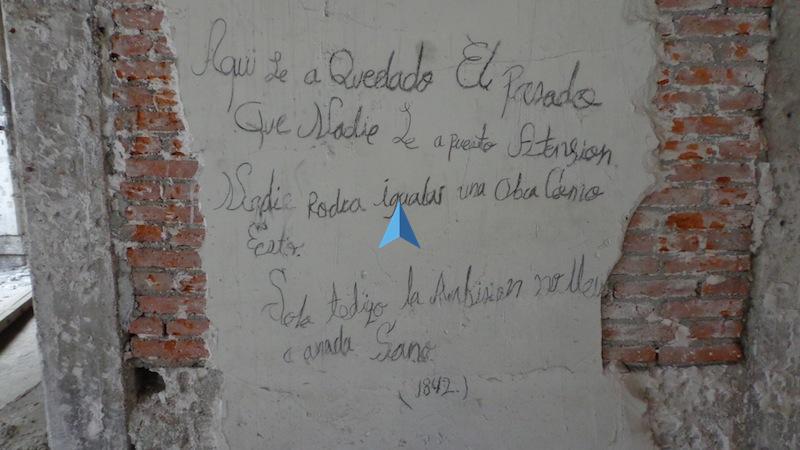 Aqui Le a Quedado El Pasado
Que Nadie Le a puesto Atension
Nadie Podra igualar una Obra Como
Esta.
Solo te digo la Ambision no lleva
a anada Sano
(1842.)